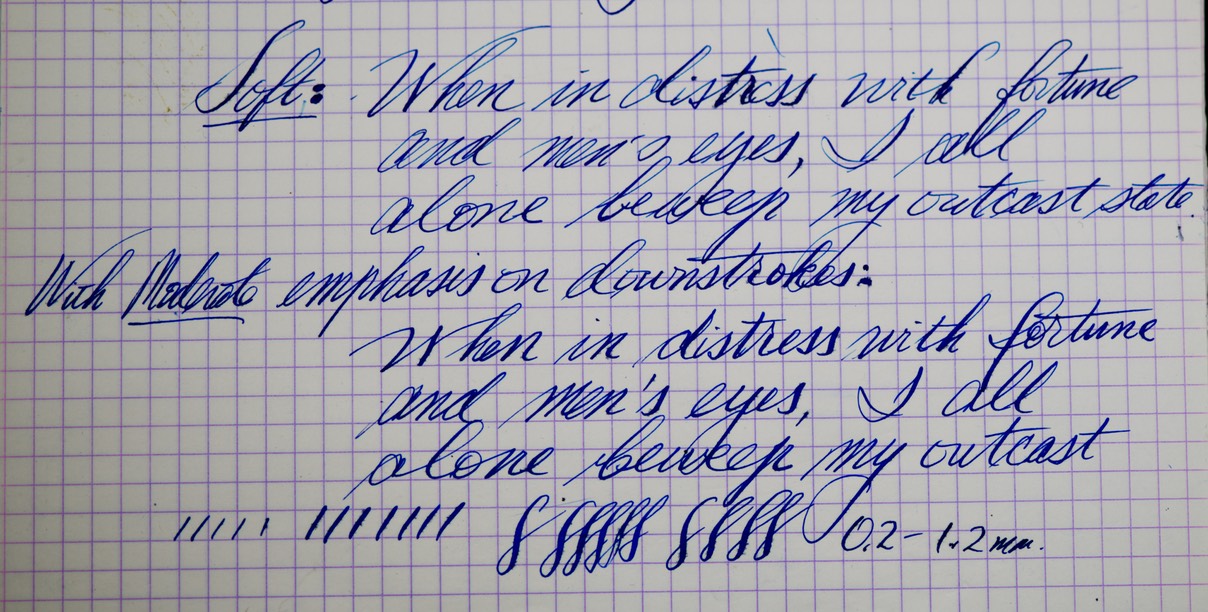 Soft: When in distress with fortune
and men's eyes, I all
alone beweep my outcast state.
With Moderate emphasis on downstrokes:
When in distress with fortune
and men's eyes, I all
alone beweep my outcast
0.2 - 1.2 mm.